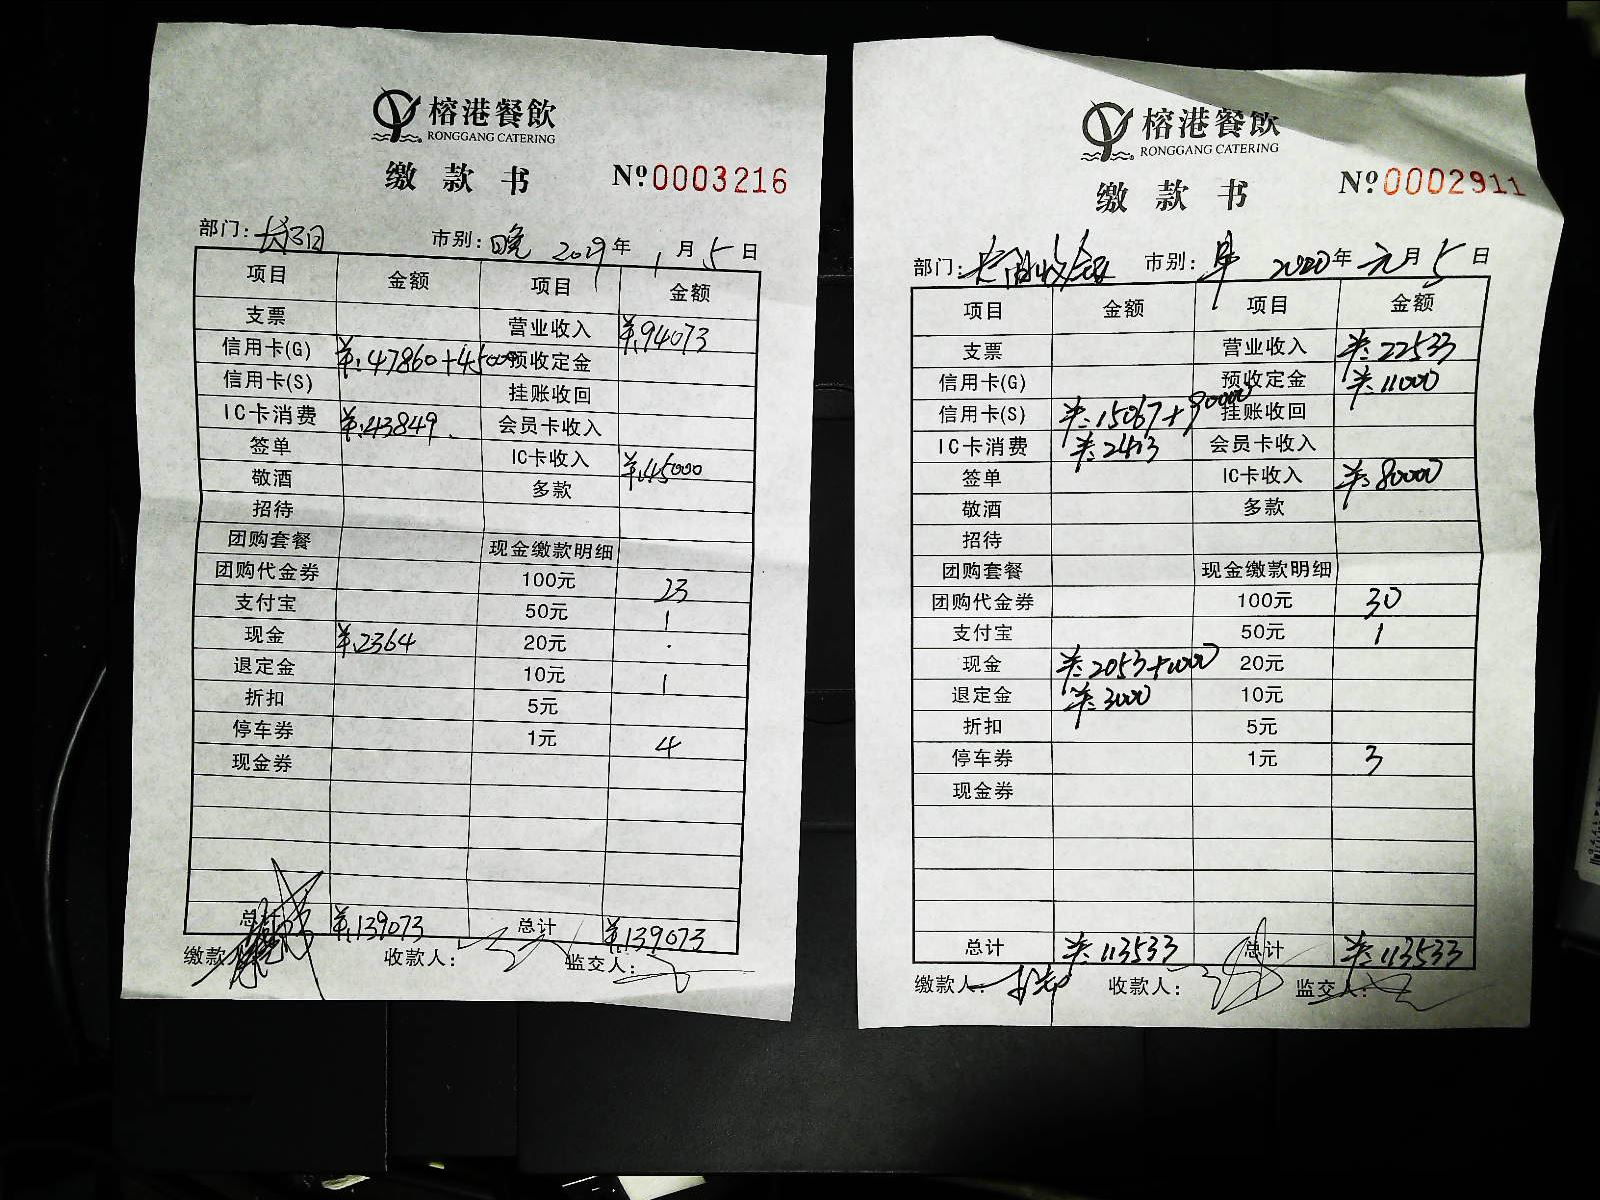 榕港餐飲
RONGGANG CATERING
缴款书 Nº0003216
部门: 市别:晚 2019年1月5日
项目 金额 项目 金额
支票 营业收入 ¥:94073
信用卡(G) ¥:47860+45000 预收定金
信用卡(S) 挂账收回
IC卡消费 ¥:43849. 会员卡收入
签单 IC卡收入 ¥:45000
敬酒 多款
招待
团购套餐 现金缴款明细
团购代金券 100元 23
支付宝 50元 1
现金 ¥:2364 20元 .
退定金 10元 1
折扣 5元
停车券 1元 4
现金券
总计 ¥:139073 总计 ¥:139073
缴款 收款人: 监交人:
榕港餐飲
RONGGANG CATERING
缴款书 Nº0002911
部门: 市别:早 2020年元月5日
项目 金额 项目 金额
支票 营业收入 ¥:22533
信用卡(G) 预收定金 ¥:11000
信用卡(S) ¥:15067+90000 挂账收回
IC卡消费 ¥:2413 会员卡收入
签单 IC卡收入 ¥:80000
敬酒 多款
招待
团购套餐 现金缴款明细
团购代金券 100元 30
支付宝 50元 1
现金 ¥:2053+1000 20元
退定金 ¥:3000 10元
折扣 5元
停车券 1元 3
现金券
总计 ¥:113533 总计 ¥:113533
缴款人: 收款人: 监交人: